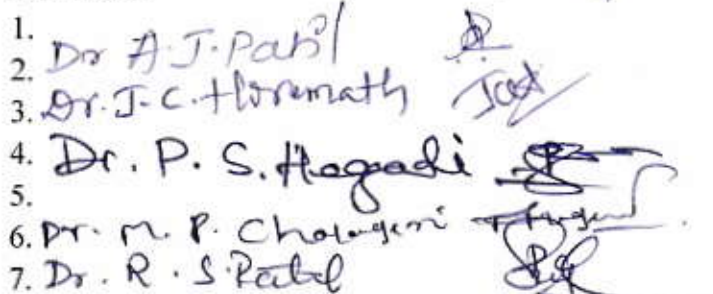 1.
2. Dr A.J.Patil
3. Dr.J.C.Hiremath
4. Dr. P. S. Hegadi
5.
6. Dr. M. P. Chalageri
7. Dr. R. S. Patil